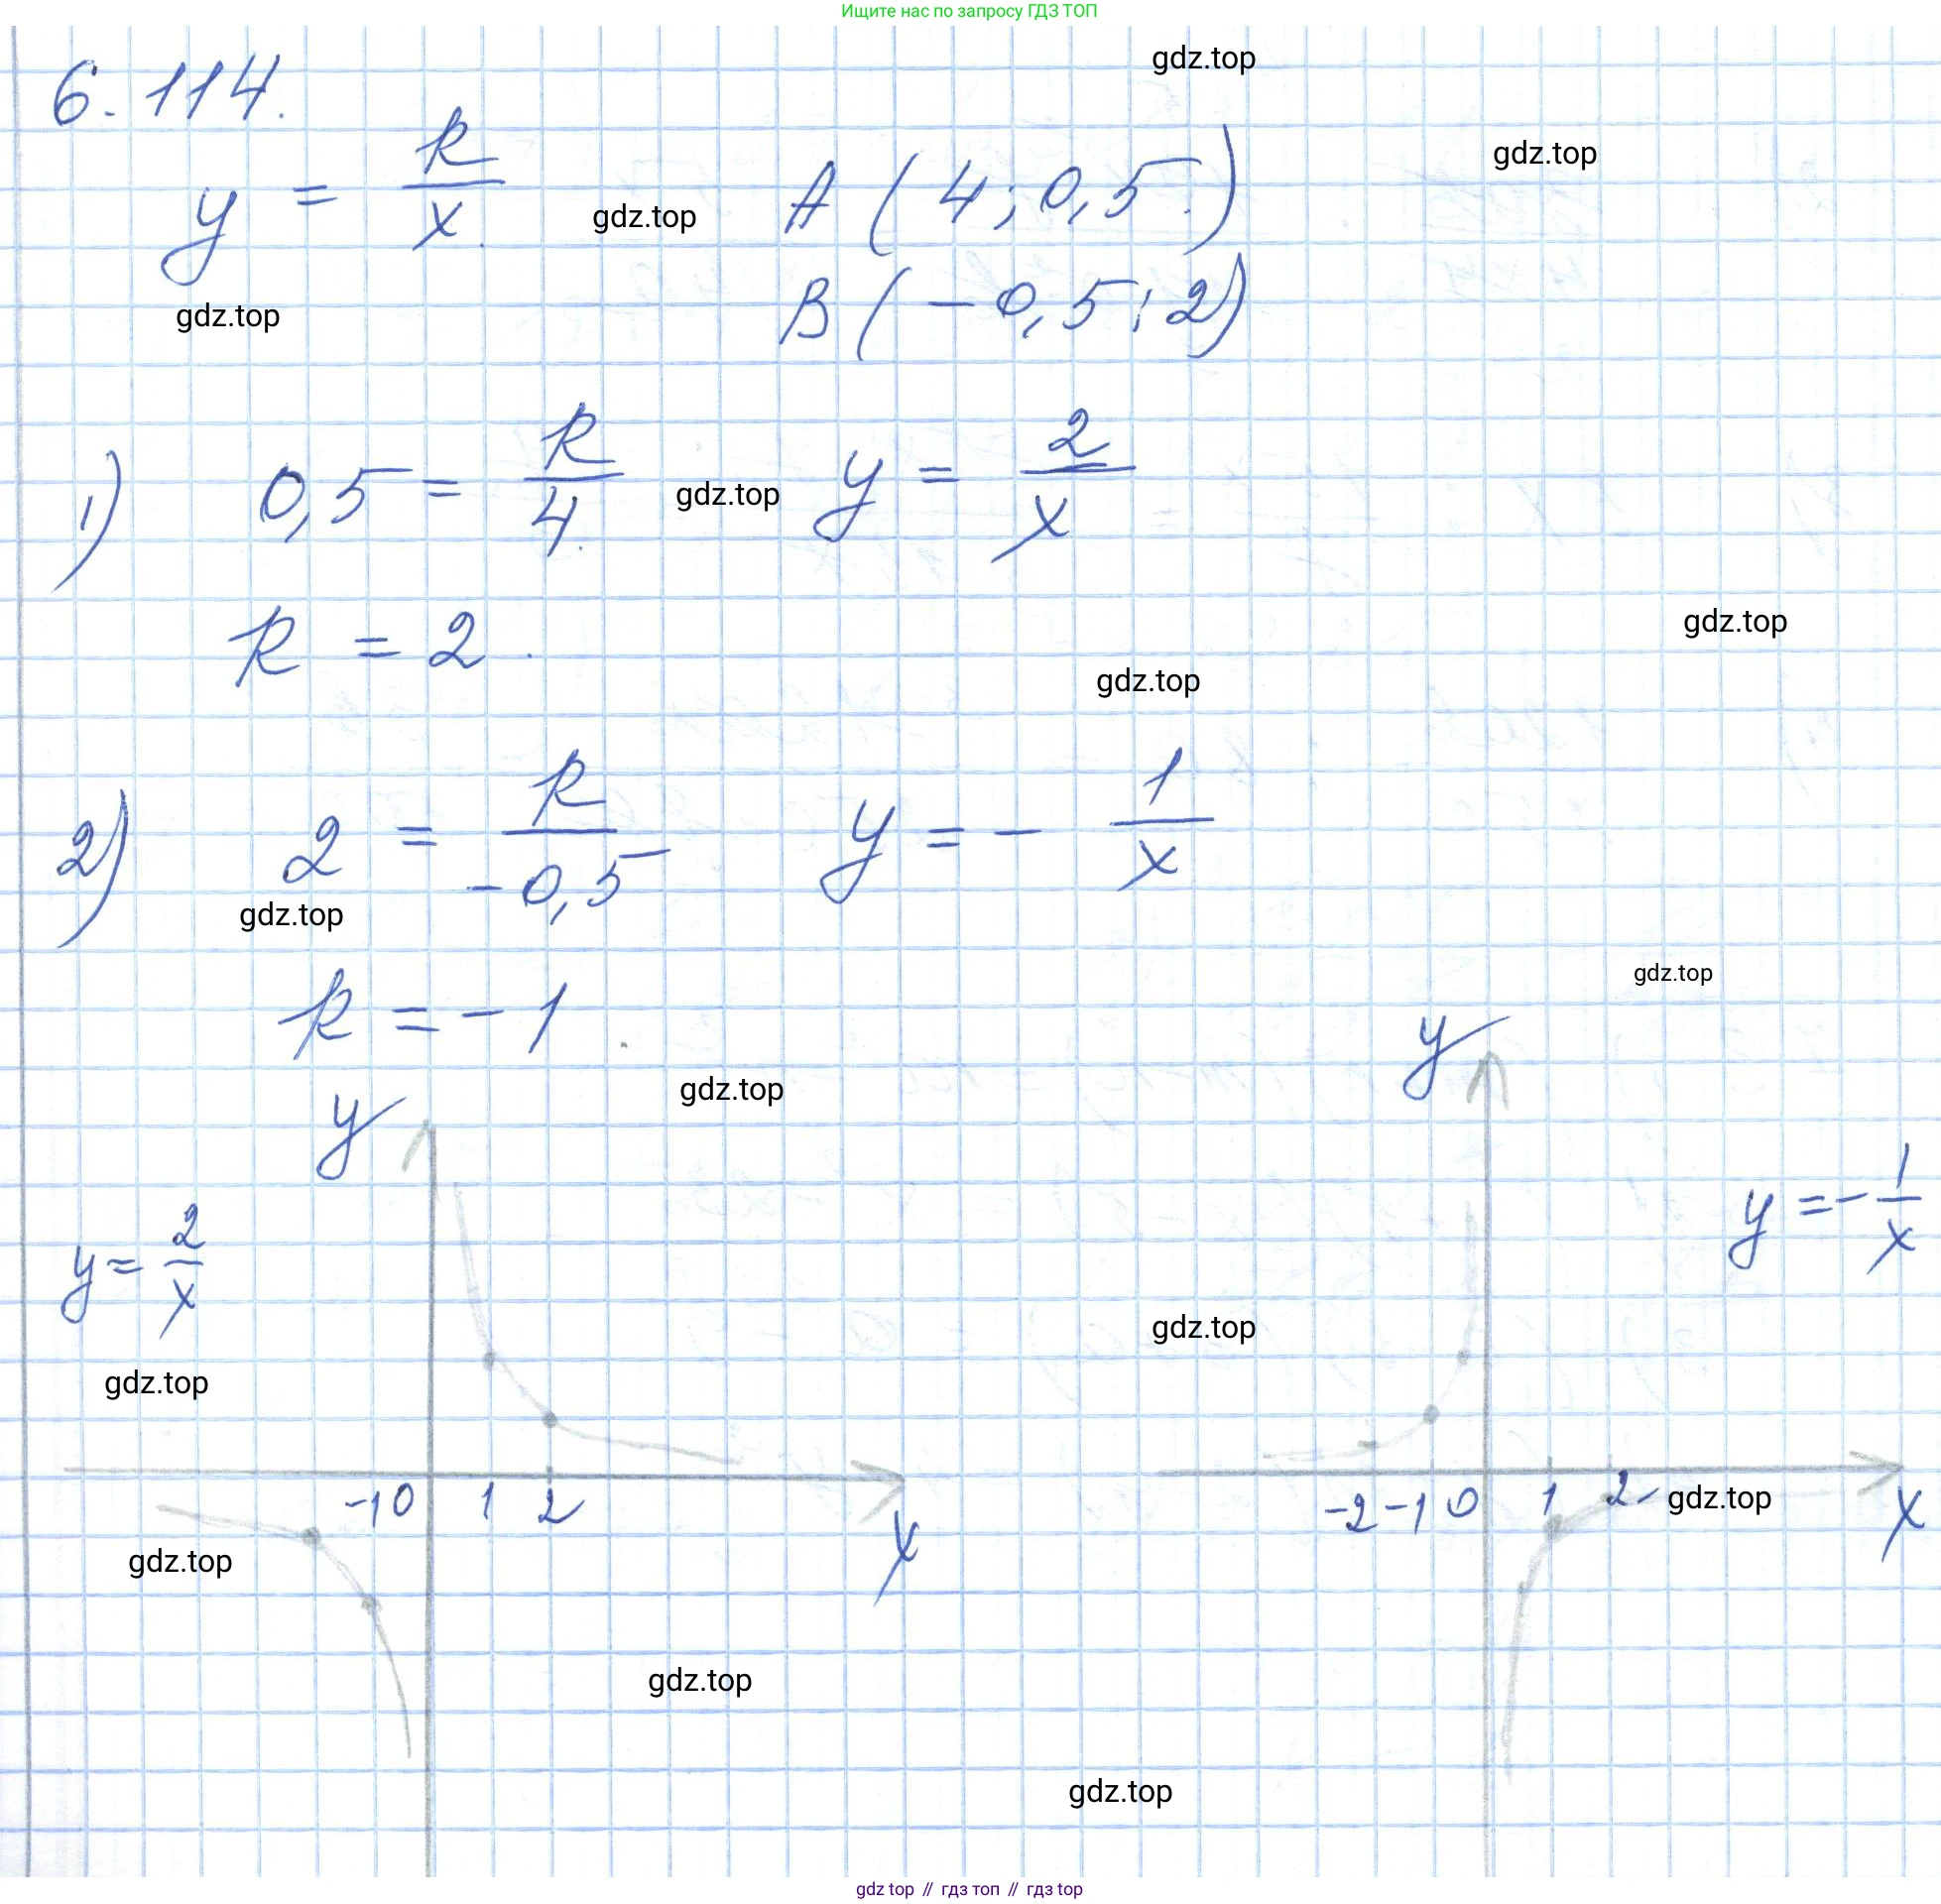 Ищите нас по запросу ГДЗ ТОП
gdz.top
6.114.
gdz.top
y = k/x
gdz.top
A (4; 0,5)
B (-0,5; 2)
gdz.top
1) 0,5 = k/4
gdz.top
y = 2/x
k = 2.
gdz.top
gdz.top
2) 2 = k/-0,5
y = - 1/x
gdz.top
gdz.top
k = -1.
y
gdz.top
y
y = 2/x
y = - 1/x
gdz.top
gdz.top
-1 0 1 2
x
-2 -1 0 1 2
gdz.top
x
gdz.top
gdz.top
gdz.top
gdz top // гдз топ // гдз top